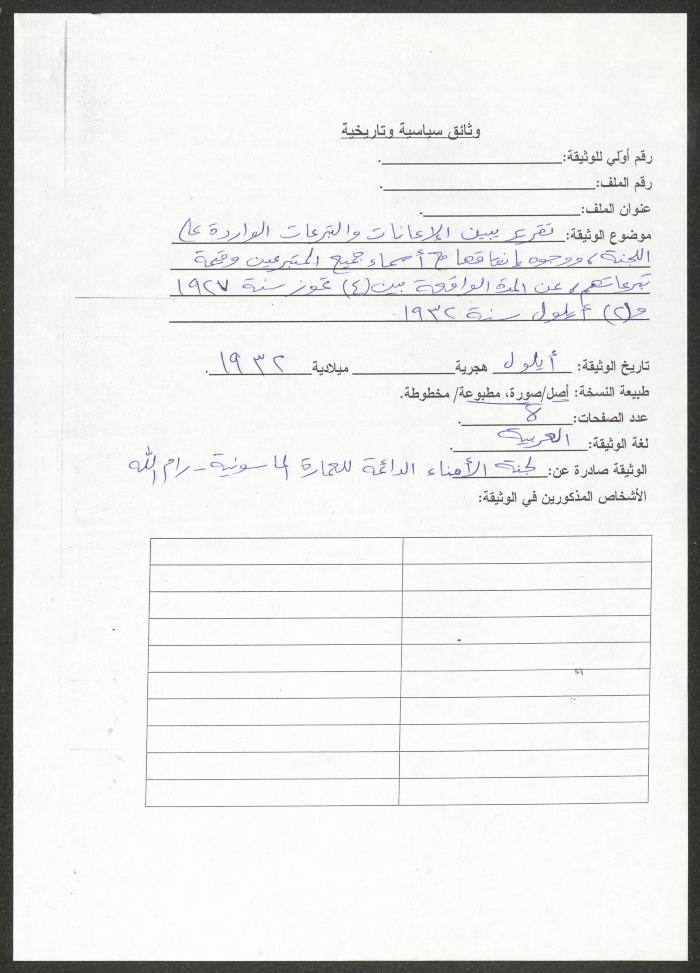 وثائق سياسية وتاريخية
رقم أوّلي للوثيقة:
رقم الملف:
عنوان الملف:
موضوع الوثيقة: تقرير يبين الإعانات والتبرعات الواردة على
اللجنة، ووجوه إنفاقها مع أسماء جميع المتبرعين وقيمة
تبرعاتهم، عن المدة الواقعة بين (٤) تموز سنة ١٩٢٧
و(٢) أيلول سنة ١٩٣٢.
تاريخ الوثيقة: أيلول هجرية ميلادية ١٩٣٢.
طبيعة النسخة: أصل/صورة، مطبوعة/ مخطوطة.
عدد الصفحات: ٨.
لغة الوثيقة: العربية.
الوثيقة صادرة عن: لجنة الأمناء الدائمة للعمارة الماسونية - رام الله
الأشخاص المذكورين في الوثيقة: